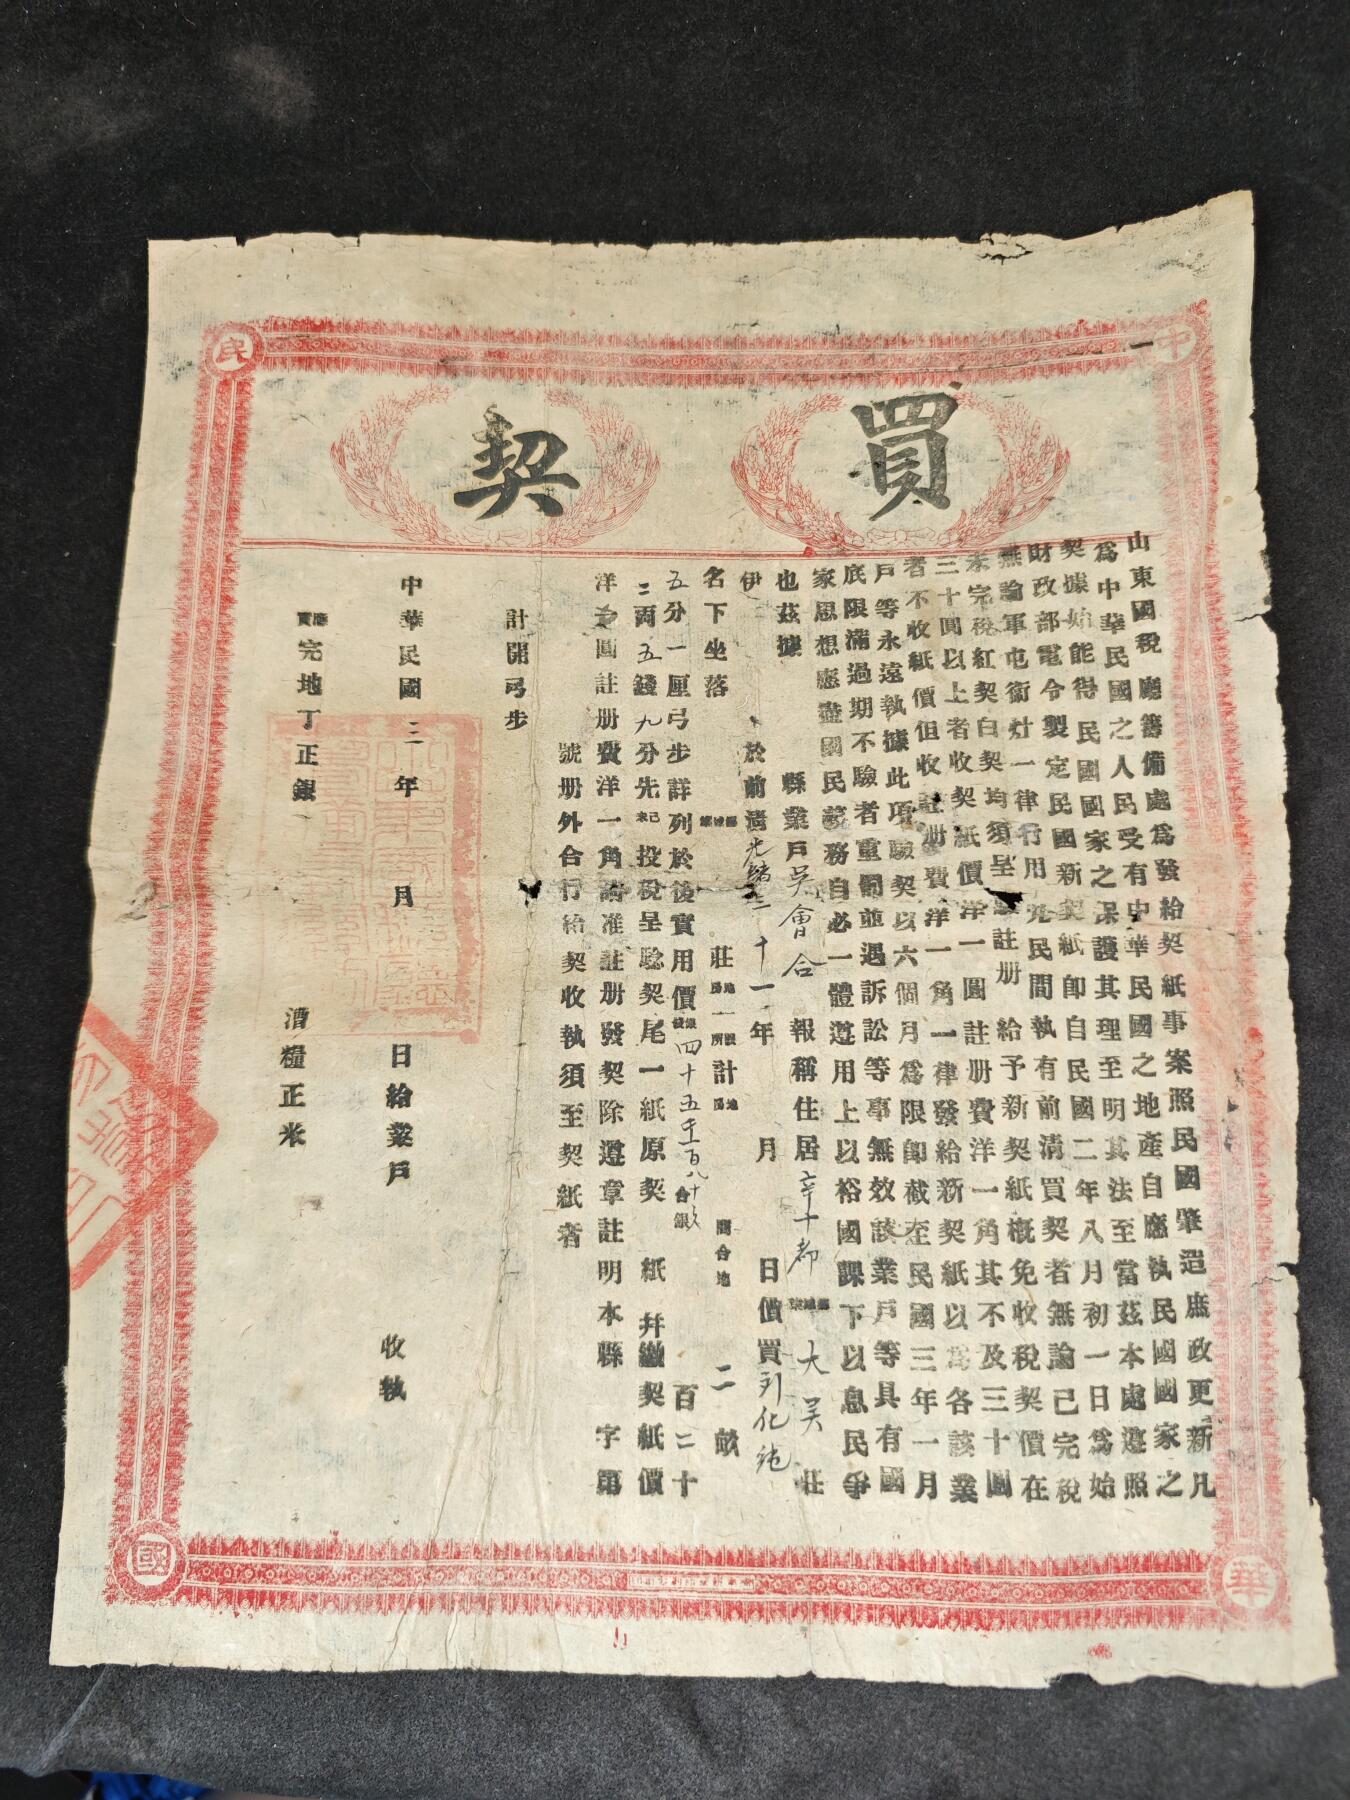 買契
中華民國
山東國税廳籌備處為發給契紙事案照民國肇造庶政更新凡
為中華民國之人民受有中華民國之地產自應執民國國家之
契據始能得民國國家之保護其理至明其法至當茲本處遵照
財政部電令製定民國新契紙即自民國二年八月初一日為始
無論軍屯衛灶一律行用凡民間執有前清買契者無論已完税
未完税紅契白契均須呈註册給予新契紙概免收税契價在
三十圓以上者收契紙價洋一圓註册費洋一角其不及三十圓
者不收紙價但收註册費洋一角一律發給新契紙以為各該業
戶等永遠執據此項驗契以六個月為限即截至民國三年一月
底限滿過期不驗者重罰並遇訴訟等事無效該業戶等具有國
家思想應盡國民義務自必一體遵用上以裕國課下以息民爭
也茲據 縣業戶吳會合 報稱住居 大吴莊
伊 於前清光緒二十一年 月 日價買 化
名下坐落 莊 計 二畝
五分一厘弓步詳列於後實用價四十五千百八十 合銀 百二十
二兩五錢九分先投税呈驗契尾一紙原契 紙并繳契紙價
洋 圓註册費洋一角請准註册發契除遵章註明本縣 字第
號册外合行給契收執須至契紙者
計開弓步
中華民國三年 月 日給業戶 收執
完地丁正銀 漕糧正米